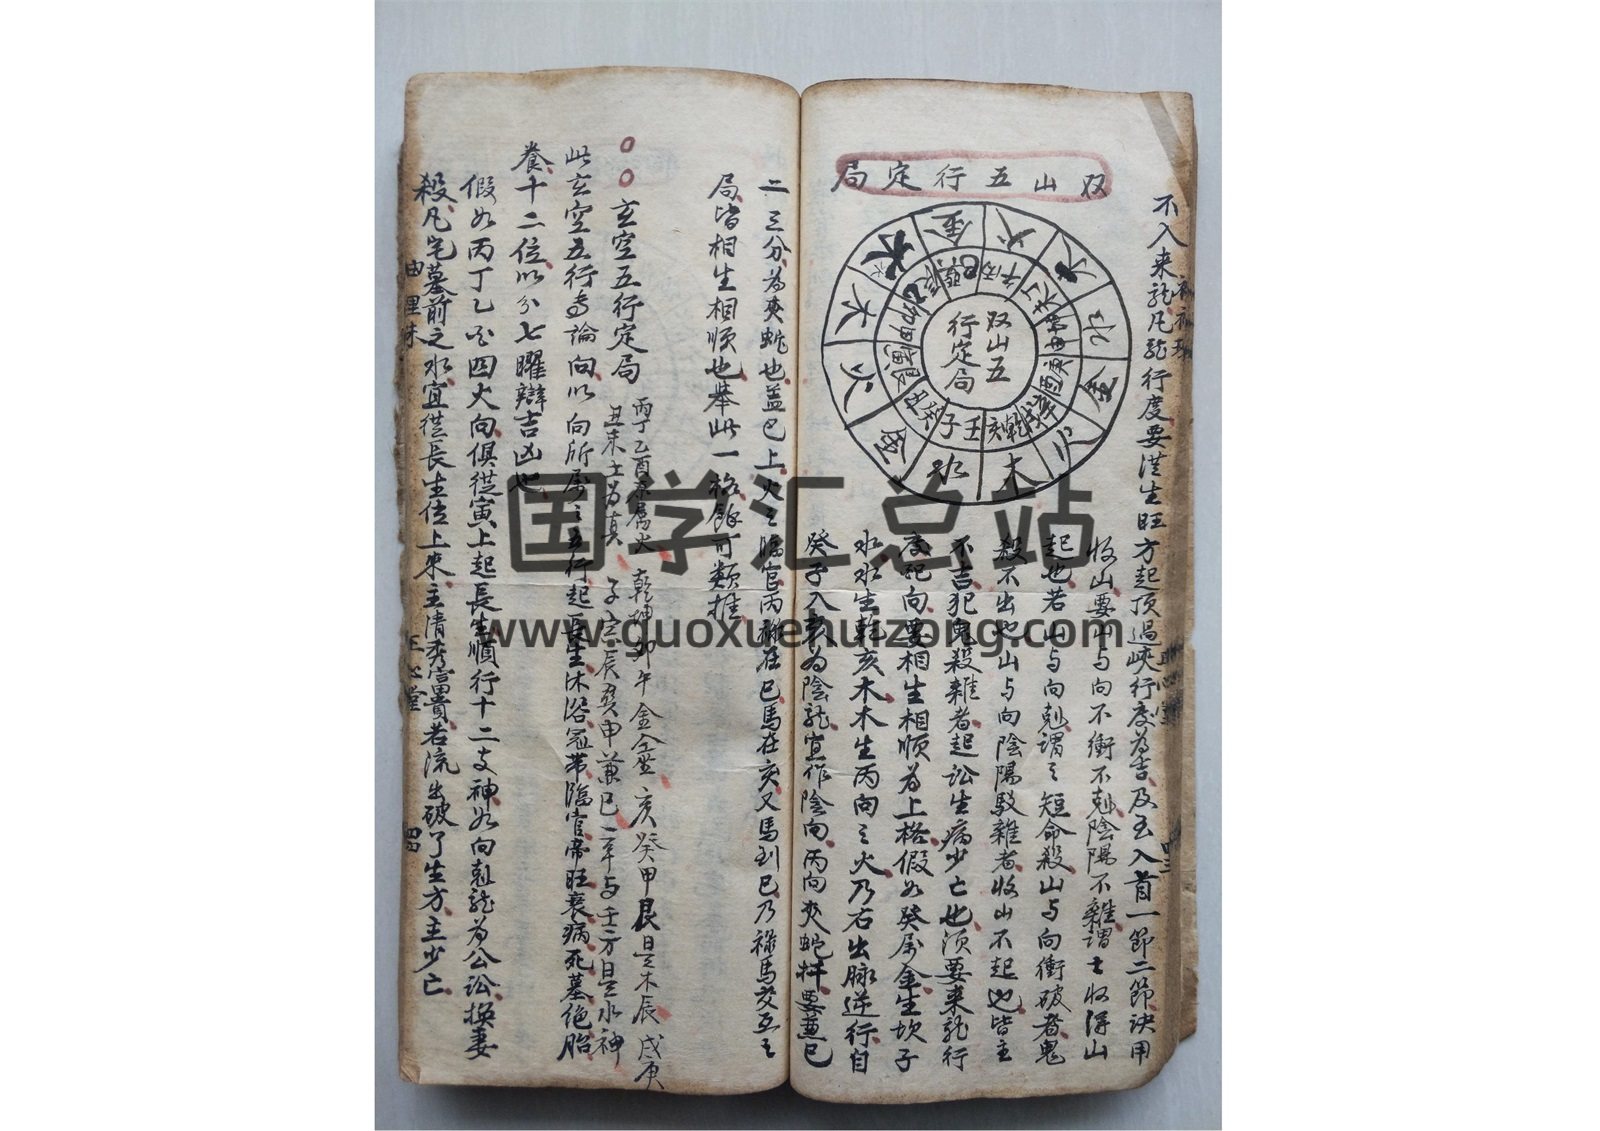 不入来龍凡龍行度要從生旺方起頂過峽行度為吉及至入首一節二節訣用
双山五行定局
双山五
行定局
火
火
水
金
火
木
水
金
火
木
木
金
丙午
丁未
坤申
庚酉
辛戌
乾亥
壬子
癸丑
艮寅
甲卯
乙辰
巽巳
收山要山与向不衝不剋陰陽不雜謂之收得山
起也若山与向剋謂之短命殺山与向衝破者鬼
殺不出也山与向陰陽駁雜者收山不起也皆主
不吉犯鬼殺雜者起訟生病少亡也須要来龍行
度配向要相生相順為上格假如癸属金生坎子
水水生乾亥木木生丙向之火乃右出脉逆行自
癸子入亥為陰龍宜作陰向丙向夾蛇拜要兼巳
二三分為夾蛇也盖巳上火之臨官丙祿在巳馬在亥又馬到巳乃祿馬交互之
局皆相生相順也舉此一格餘可類推
玄空五行定局
丙丁乙酉原属火 乾坤卯午金全
亥癸甲艮是木辰 戌庚
丑未土為真 子寅辰巽申兼巳 辛与壬方是水神
此玄空五行専論向以向所属之五行起長生沐浴冠帯臨官帝旺衰病死墓絶胎
養十二位以分七曜辯吉凶也
假如丙丁乙酉四火向俱從寅上起長生順行十二支神如向剋龍為公訟換妻
殺凡宅墓前之水宜從長生位上来主清秀富貴若流出破了生方主少亡
正心堂
四四
四三
国学汇总站
www.guoxuehuizong.com